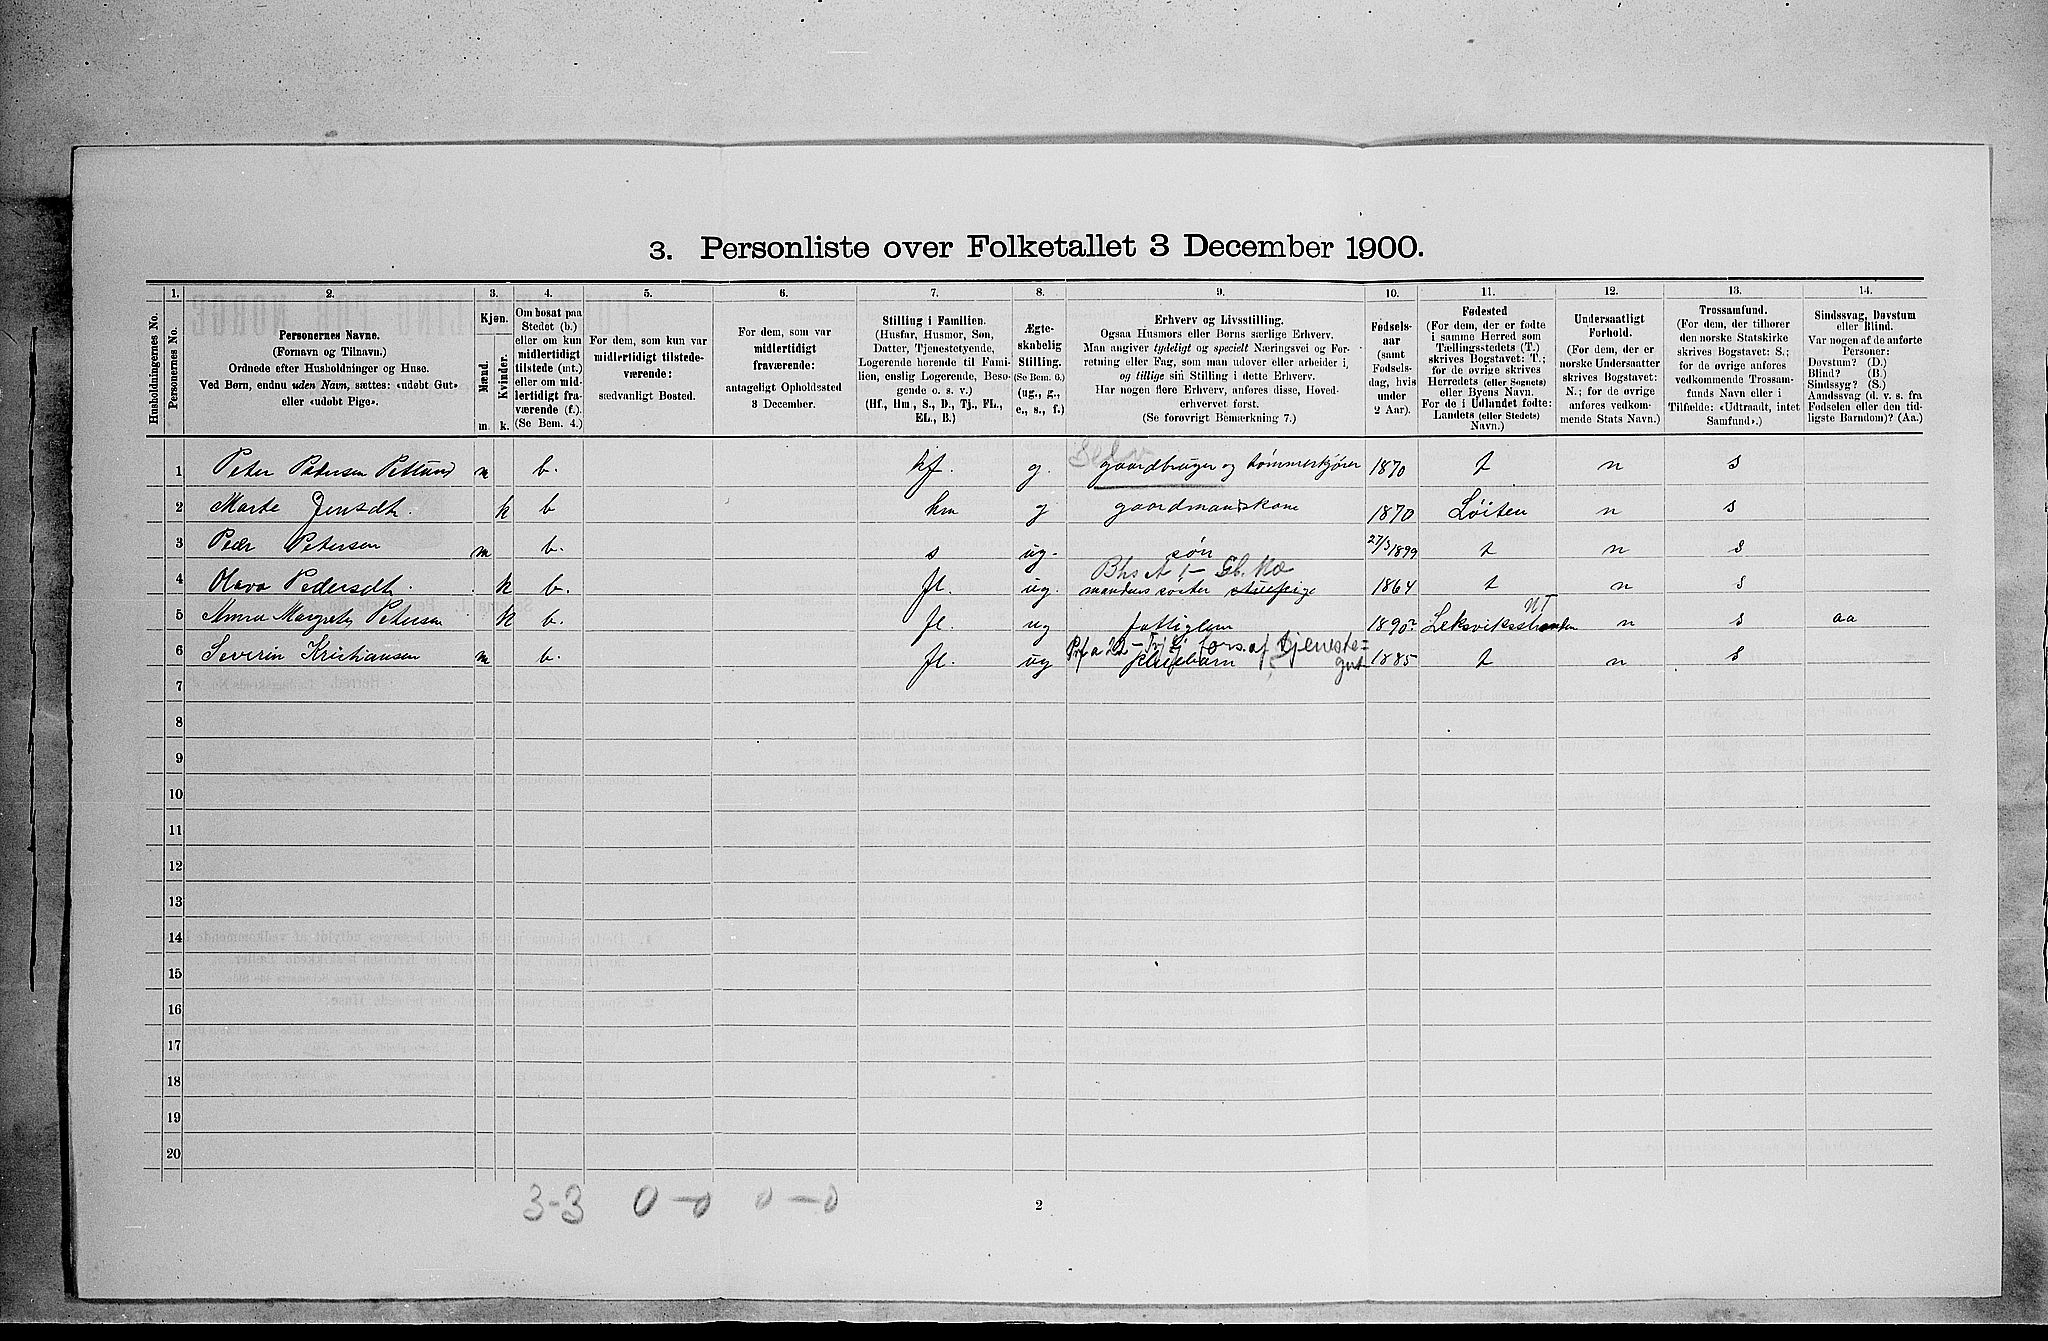 3. Personliste over Folketallet 3 December 1900.
Husholdningernes No.
1.
Personernes No.
2.
Personernes Navne.
(Fornavn og Tilnavn.)
Ordnede efter Husholdninger og Huse.
Ved Børn, endnu uden Navn, sættes: «udøbt Gut»
eller «udøbt Pige».
3.
Kjøn.
Mænd.
Kvinder.
m.
k.
4.
Om bosat paa
Stedet (b.)
eller om kun
midlertidigt
tilstede (mt.)
eller om mid-
lertidigt fra-
værende (f.).
(Se Bem. 4.)
5.
For dem, som kun var
midlertidigt tilstede-
værende:
sædvanligt Bosted.
6.
For dem, som var
midlertidigt
fraværende:
antageligt Opholdssted
3 December.
7.
Stilling i Familien.
(Husfar, Husmor, Søn,
Datter, Tjenestetyende,
Logerende hørende til Fami-
lien, enslig Logerende, Besø-
gende o. s. v.)
(Hf., Hm., S., D., Tj., FL.,
EL., B.)
8.
Ægte-
skabelig
Stilling.
(Se Bem. 6.)
(ug., g.,
e., s., f.)
9.
Erhverv og Livsstilling.
Ogsaa Husmors eller Børns særlige Erhverv.
Man angiver tydeligt og specielt Næringsvei og For-
retning eller Fag, som man udøver eller arbeider i,
og tillige sin Stilling i dette Erhverv.
Har nogen flere Erhverv, anføres disse, Hoved-
erhvervet først.
(Se forøvrigt Bemærkning 7.)
10.
Fødsels-
aar
(samt
Fødsels-
dag, hvis
under
2 Aar).
11.
Fødested
(For dem, der er fødte
i samme Herred som
Tællingsstedets (T.)
skrives Bogstavet: T.;
for de øvrige skrives
Herredets (eller Sognets)
eller Byens Navn.
For de i Udlandet fødte:
Landets (eller Stedets)
Navn.)
12.
Undersaatligt
Forhold.
(For dem, der er
norske Undersaatter
skrives Bogstavet:
N.; for de øvrige
anføres vedkom-
mende Stats Navn.)
13.
Trossamfund.
(For dem, der tilhører
den norske Statskirke
skrives Bogstavet: S.;
for de øvrige anføres
vedkommende Trossam-
funds Navn eller i
Tilfælde: «Udtraadt, intet
Samfund».)
14.
Sindssvag, Døvstum
eller Blind.
Var nogen af de anførte
Personer:
Døvstum? (D.)
Blind? (B.)
Sindssyg? (S.)
Aandssvag (d. v. s. fra
Fødselen eller den tid-
ligste Barndom)? (Aa.)
Selv
1 Peter Pedersen m b. hf. g. gaardbruger og tømmerkjører 1870 t n s
2 Marte Jensdt. k b hm g gaardmandskone 1870 Løiten n s
3 Peder Petersen m b. s ug. søn 27/3 1899 t n s
4 Olava Pedersdt. k b. fl. ug. mandens søster 1864 t n s
5 Anna Margrete Petersen k b. fl. ug fattiglem 1890? Leksviksstranden NT n s aa
6 Severin Kristiansen m b. fl. ug pleiebarn fors. af tjeneste=
gut 1885 t n s
7
8
9
10
11
12
13
14
15
16
17
18
19
20
3-3 0-0 0-0
2